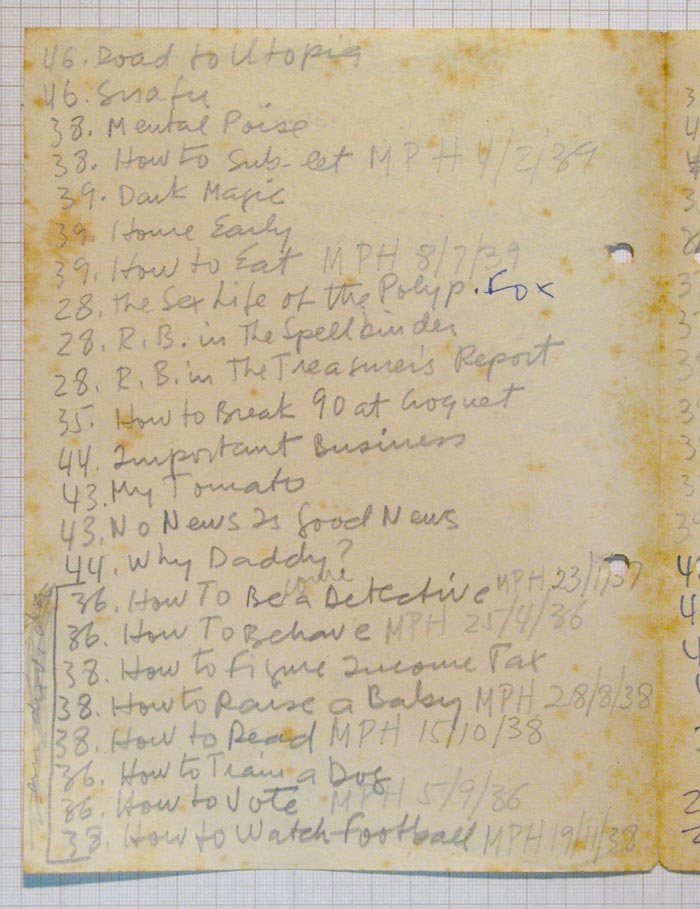 46. Road to Utopia
46. Snafu
38. Mental Poise
38. How to Sub-let MPH 4/2/39
39. Dark Magic
39. Home Early
39. How to Eat MPH 8/7/39
28. The Sex Life of the Polyp. Fox
28. R.B. in The Spellbinder
28. R.B. in The Treasurer's Report
35. How to Break 90 at Croquet
44. Important Business
43. My Tomato
43. No News Is Good News
44. Why Daddy?
36. How To Become a Detective MPH 23/1/37
36. How To Behave MPH 25/4/36
38. How to Figure Income Tax
38. How to Raise a Baby MPH 28/8/38
38. How to Read MPH 15/10/38
36. How to Train a Dog
36. How to Vote MPH 5/9/36
38. How to Watch Football MPH 19/11/38